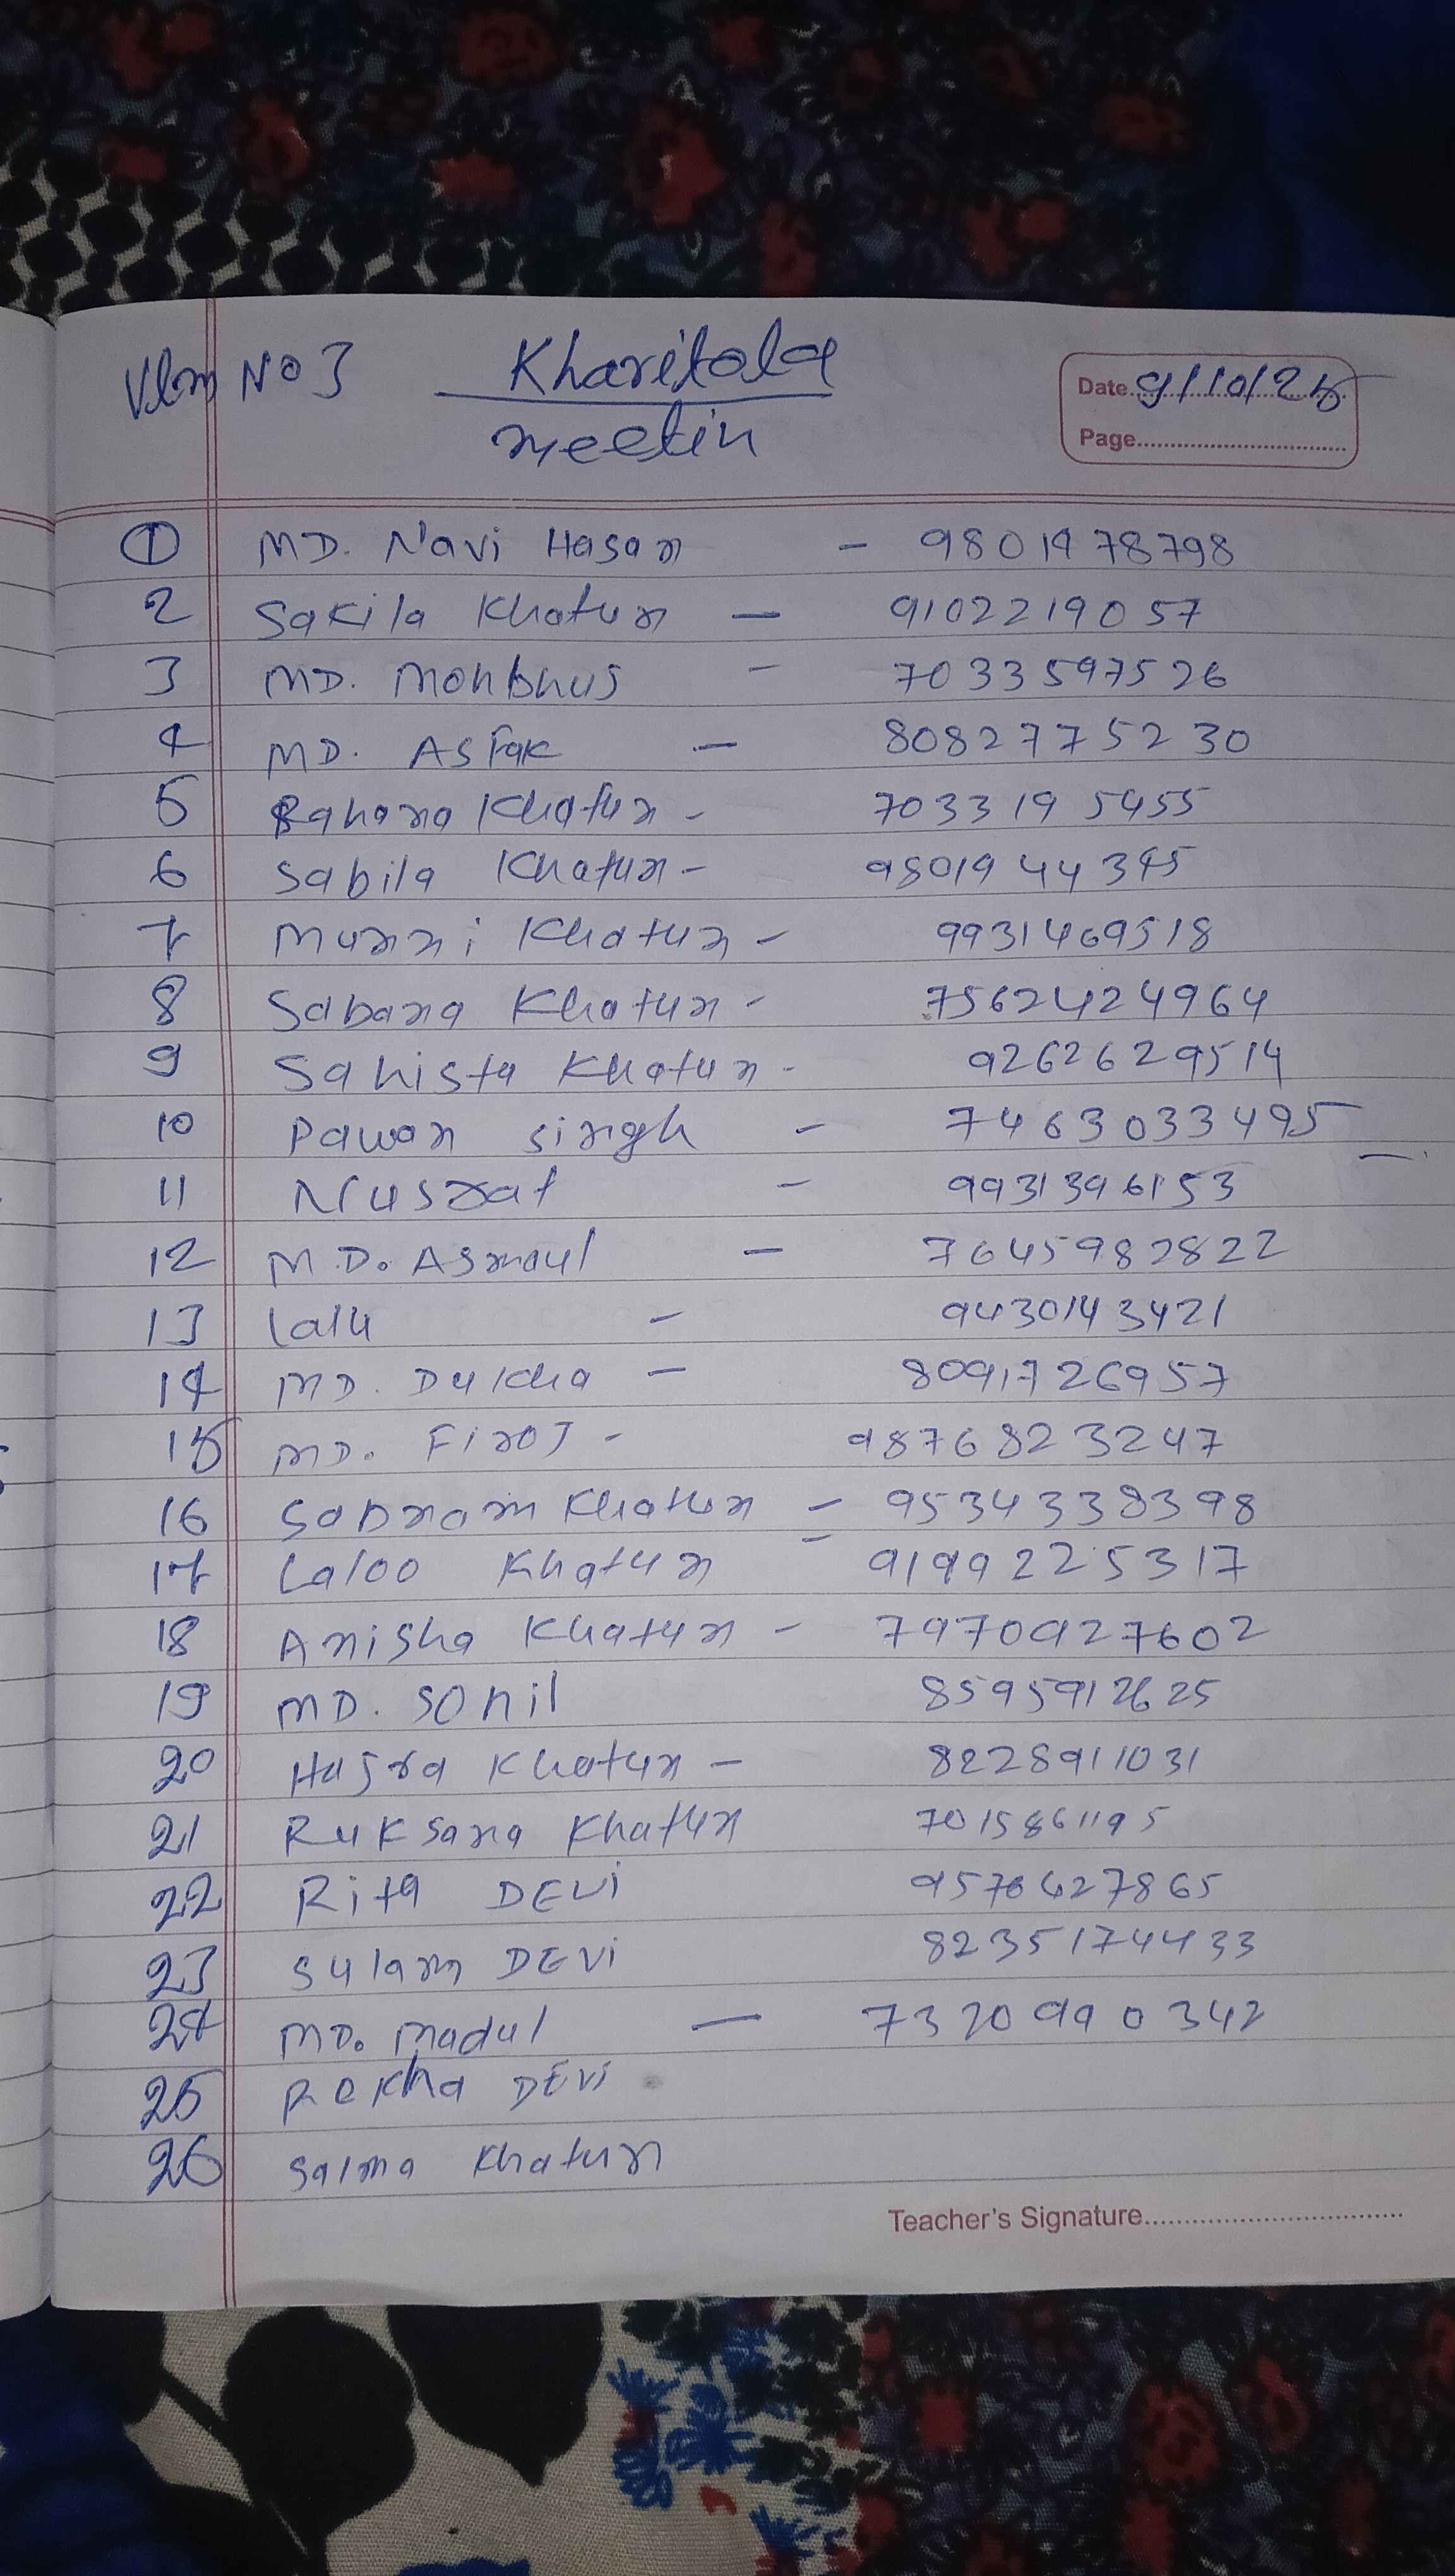 Vlm No 3 Kharitola
meetin
Date 9/10/25
Page
1 MD. Navi Hasan - 9801978798
2 Sakila Khatun - 9102219057
3 MD. Mohbhus - 7033597526
4 MD. ASFak - 8082775230
5 Rahana Khatun - 7033195455
6 Sabila Khatun - 9801944345
7 Munni Khatun - 9931469518
8 Sabana Khatun - 7562424964
9 Sahista Khatun - 9262629514
10 Pawan singh - 7463033495
11 Nusrat - 9931396153
12 M.D. Asmaul - 7645982822
13 Lalu - 9430143421
14 MD. Dukha - 8091726957
15 MD. Firoj - 9876823247
16 Sabnam Khatun - 9534338398
17 Laloo Khatun - 9199225317
18 Anisha Khatun - 7970927602
19 MD. Sohil 8595912625
20 Hajra Khatun - 8228911031
21 Ruksana Khatun 7015861195
22 Rita DEVi
23 DEVi 8235174433
24 MD. Madul - 7320990342
25 Rekha DEVi
26 Salma Khatun
Teacher's Signature